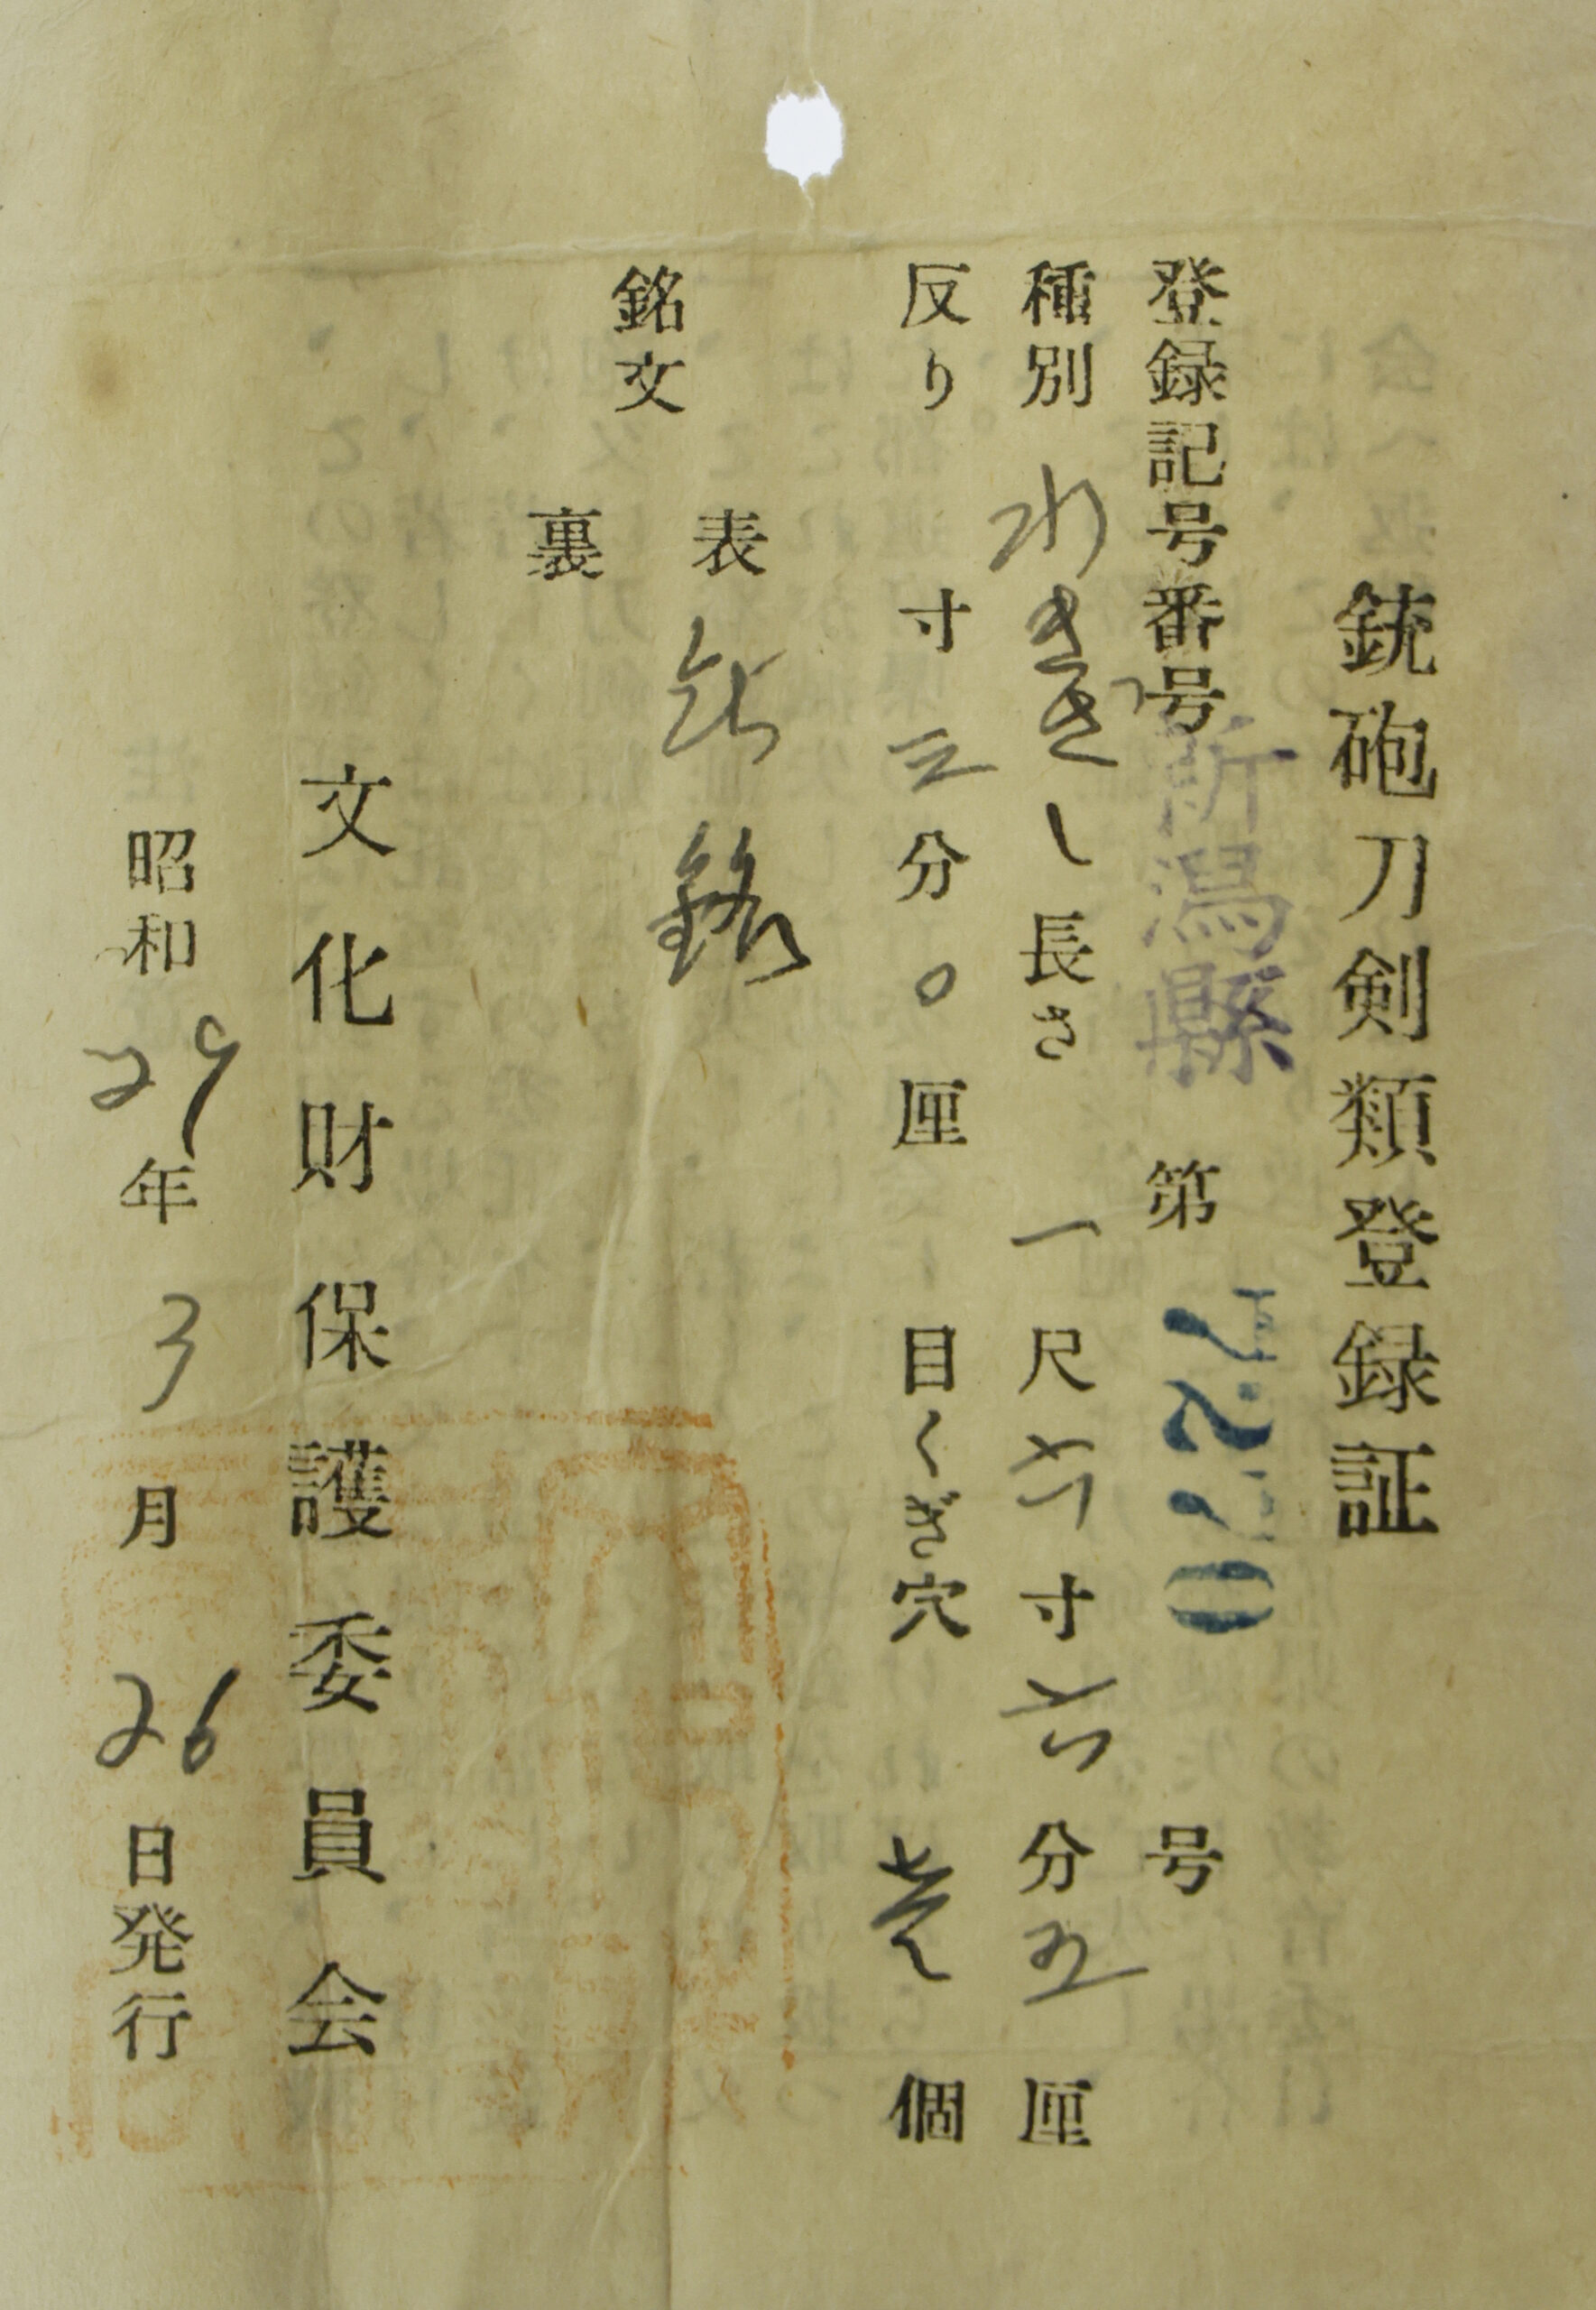 銃砲刀剣類登録証
登録記号番号 新潟縣 第 号
種別 わきざし 長さ 一尺六寸六分五厘
反り 寸三分〇厘 目くぎ穴 壱個
銘文
表 無銘
裏
文化財保護委員会
昭和29年3月26日発行